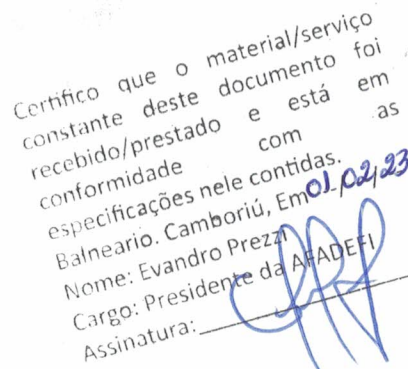 Certifico que o material/serviço
constante deste documento foi
recebido/prestado e está em
conformidade com as
especificações nele contidas.
Balneario. Camboriú, Em 01/02/23
Nome: Evandro Prezzi
Cargo: Presidente da AFADEFI
Assinatura: